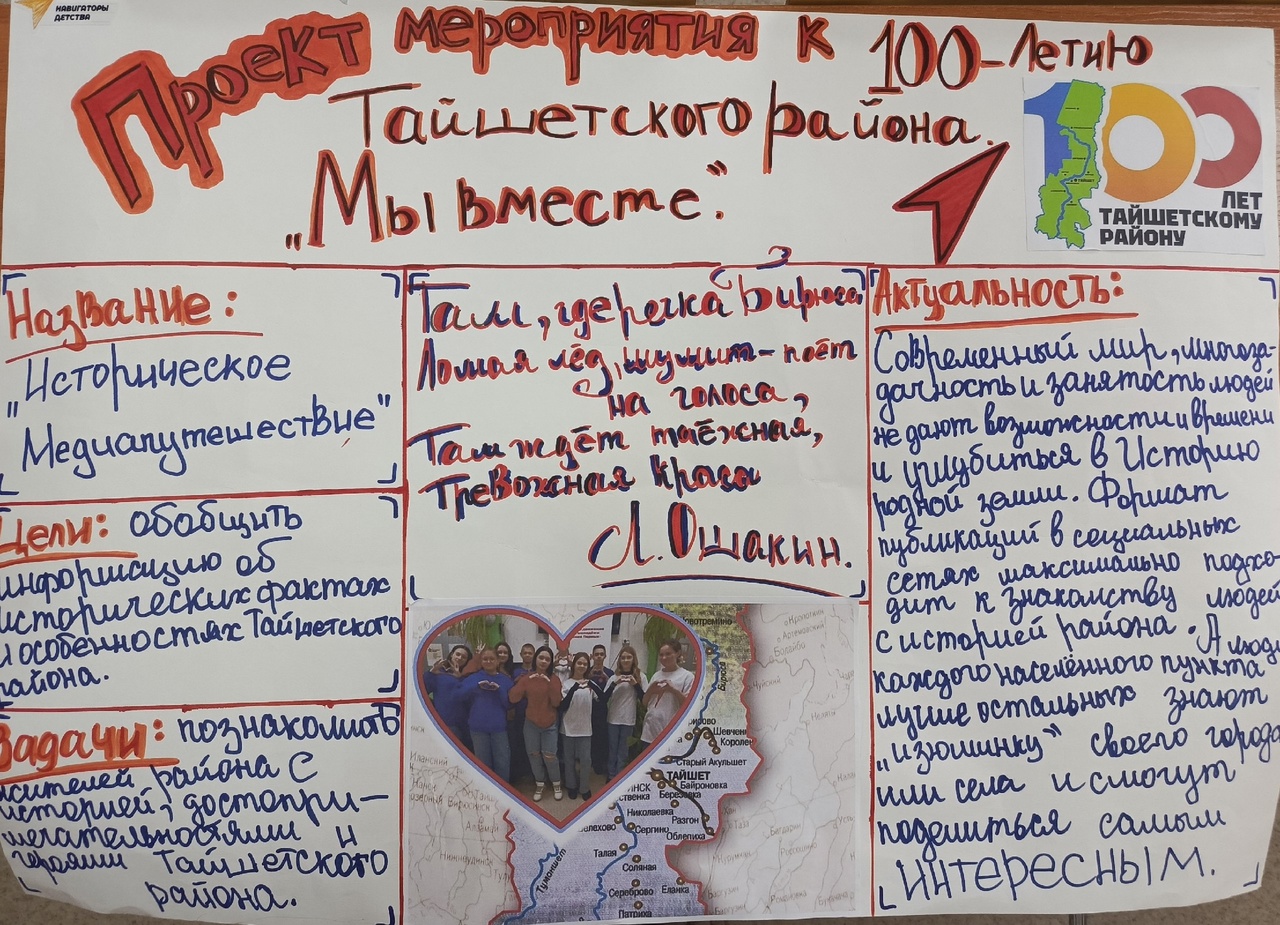 НАВИГАТОРЫ
ДЕТСТВА
Проект мероприятия к 100-летию
Тайшетского района.
„Мы вместе".
100
ТАЙШЕТ
ЛЕТ
ТАЙШЕТСКОМУ
РАЙОНУ
Название:
"Историческое
Медиапутешествие"
Цели: обобщить
информацию об
исторических фактах
и особенностях Тайшетского
района.
Задачи: познакомить
жителей района с
историей, достопри-
мечательностями и
героями Тайшетского
района.
Там, где речка Бирюса
Ломая лёд, шумит-поёт
на голоса,
Там ждёт таёжная,
Тревожная краса
Л. Ошакин.
Новотремино
Бирюса
Шевчен
Королен
Старый Акульшет
ТАЙШЕТ
Байроновка
Березовка
Николаевка
Разгон
Сергино
Облепиха
Талая
Соляная
Сереброво
Еланка
Патриха
Туманшет
Актуальность:
Современный мир, многоза-
дачность и занятость людей
не дают возможности и времени
и углубиться в Историю
родной земли. Формат
публикаций в социальных
сетях максимально подхо-
дит к знакомству людей
с историей района. А люди
каждого населённого пункта
лучше остальных знают
„изюминку" своего города
или села и смогут
поделиться самым
интересным.